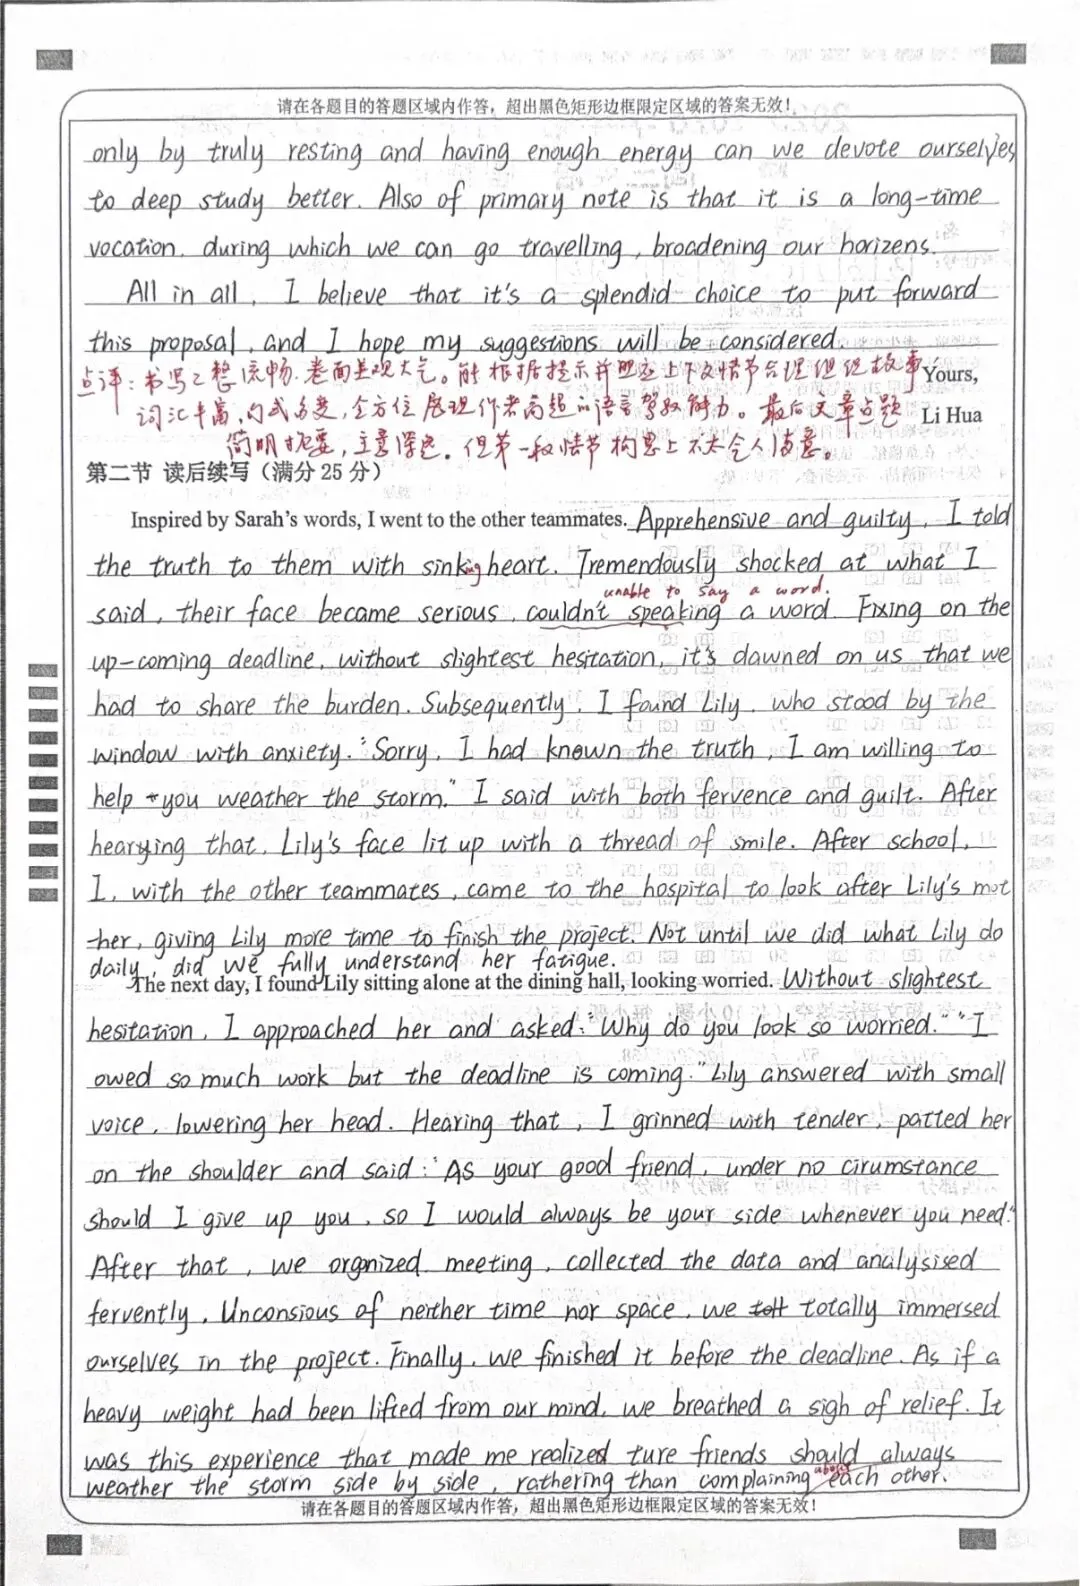 请在各题目的答题区域内作答，超出黑色矩形边框限定区域的答案无效！
only by truly resting and having enough energy can we devote ourselves
to deep study better. Also of primary note is that it is a long-time
vocation, during which we can go travelling, broadening our horizens.
All in all, I believe that it's a splendid choice to put forward
this proposal, and I hope my suggestions will be considered.
点评：书写工整流畅，卷面美观大气。能根据提示并照应上下文情节合理组织故事
Yours,
词汇丰富，句式多变，全方位展现作者高超的语言驾驭能力。最后文章点题
Li Hua
简明扼要，主意深远。但第一段情节构思上不太令人满意。
第二节 读后续写（满分 25 分）
Inspired by Sarah's words, I went to the other teammates. Apprehensive and guilty, I told
the truth to them with sinking heart. Tremendously shocked at what I
unable to say a word.
said, their face became serious, couldn't speaking a word. Fixing on the
up-coming deadline, without slightest hesitation, it's dawned on us that we
had to share the burden. Subsequently, I found Lily, who stood by the
window with anxiety. "Sorry, I had known the truth, I am willing to
help you weather the storm." I said with both fervence and guilt. After
hearying that, Lily's face lit up with a thread of smile. After school,
I, with the other teammates, came to the hospital to look after Lily's mot
-her, giving Lily more time to finish the project. Not until we did what Lily do
daily, did we fully understand her fatigue.
The next day, I found Lily sitting alone at the dining hall, looking worried. Without slightest
hesitation, I approached her and asked: "Why do you look so worried." "I
owed so much work but the deadline is coming." Lily answered with small
voice, lowering her head. Hearing that, I grinned with tender, patted her
on the shoulder and said: "As your good friend, under no cirumstance
should I give up you, so I would always be your side whenever you need."
After that, we orgnized meeting, collected the data and analysised
fervently. Unconsious of neither time nor space, we totally immersed
ourselves in the project. Finally, we finished it before the deadline. As if a
heavy weight had been lifted from our mind, we breathed a sigh of relief. It
was this experience that made me realized ture friends should always
weather the storm side by side, rathering than complaining about each other.
请在各题目的答题区域内作答，超出黑色矩形边框限定区域的答案无效！